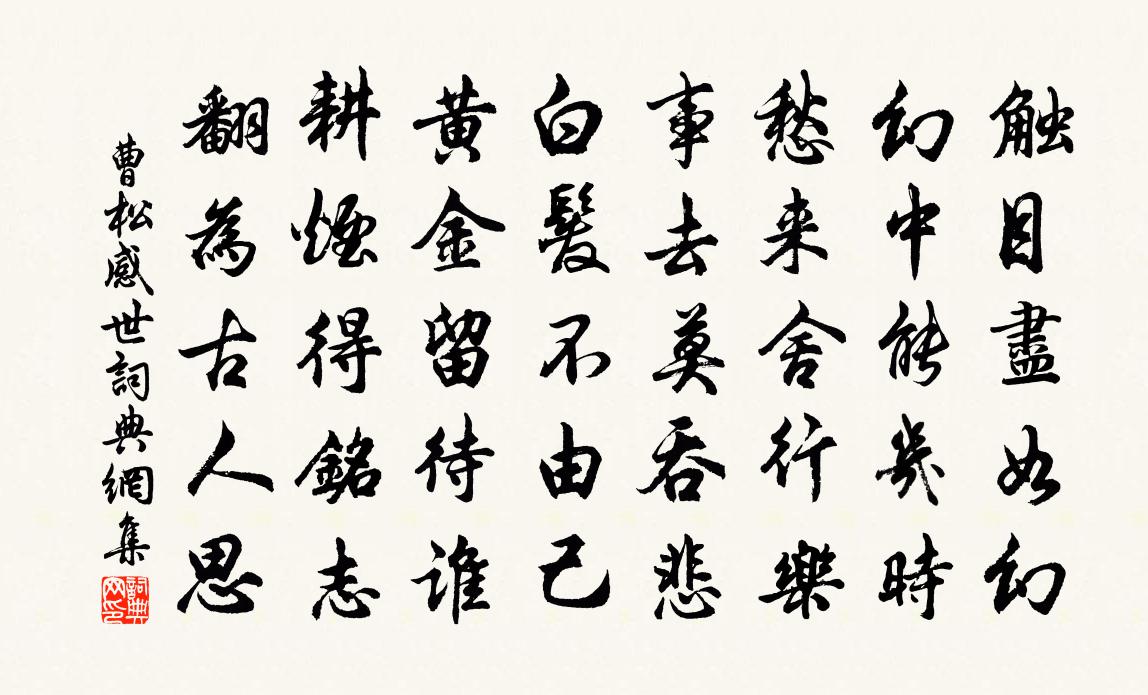 触目盡如幻
幻中能幾時
愁来舍行樂
事去莫吞悲
白髮不由己
黃金留待誰
耕煙得銘志
翻為古人思
曹松感世詞典網集